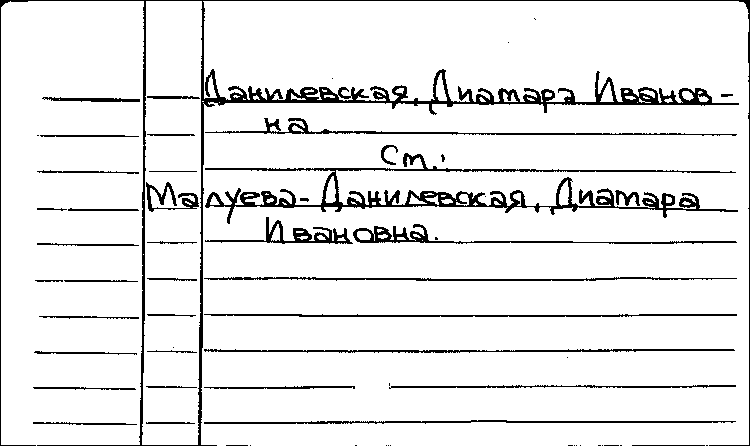 Данилевская, Диатара Иванов-
на.
См.:
Малуева-Данилевская, Диатара
Ивановна.